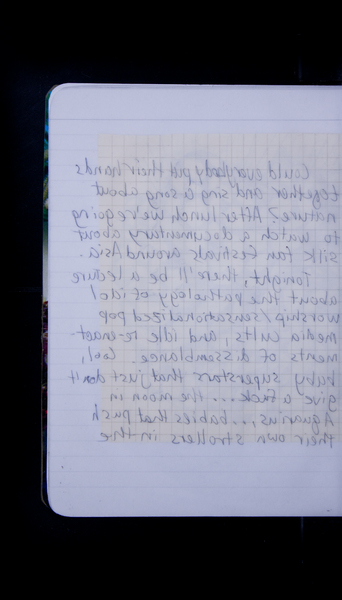 Could everybody put their hands
together and sing a song about
nature? After lunch we're going
to watch a documentary about
silk fan festivals around Asia.
Tonight, there'll be a lecture
about the pathology of idol
worship/sensationalized pop
media cults, and idle re-enact-
ments of assemblance. Cool,
baby superstars that just don't
give a fuck.... the moon in
Aquarius,... babies that push
their own strollers in the